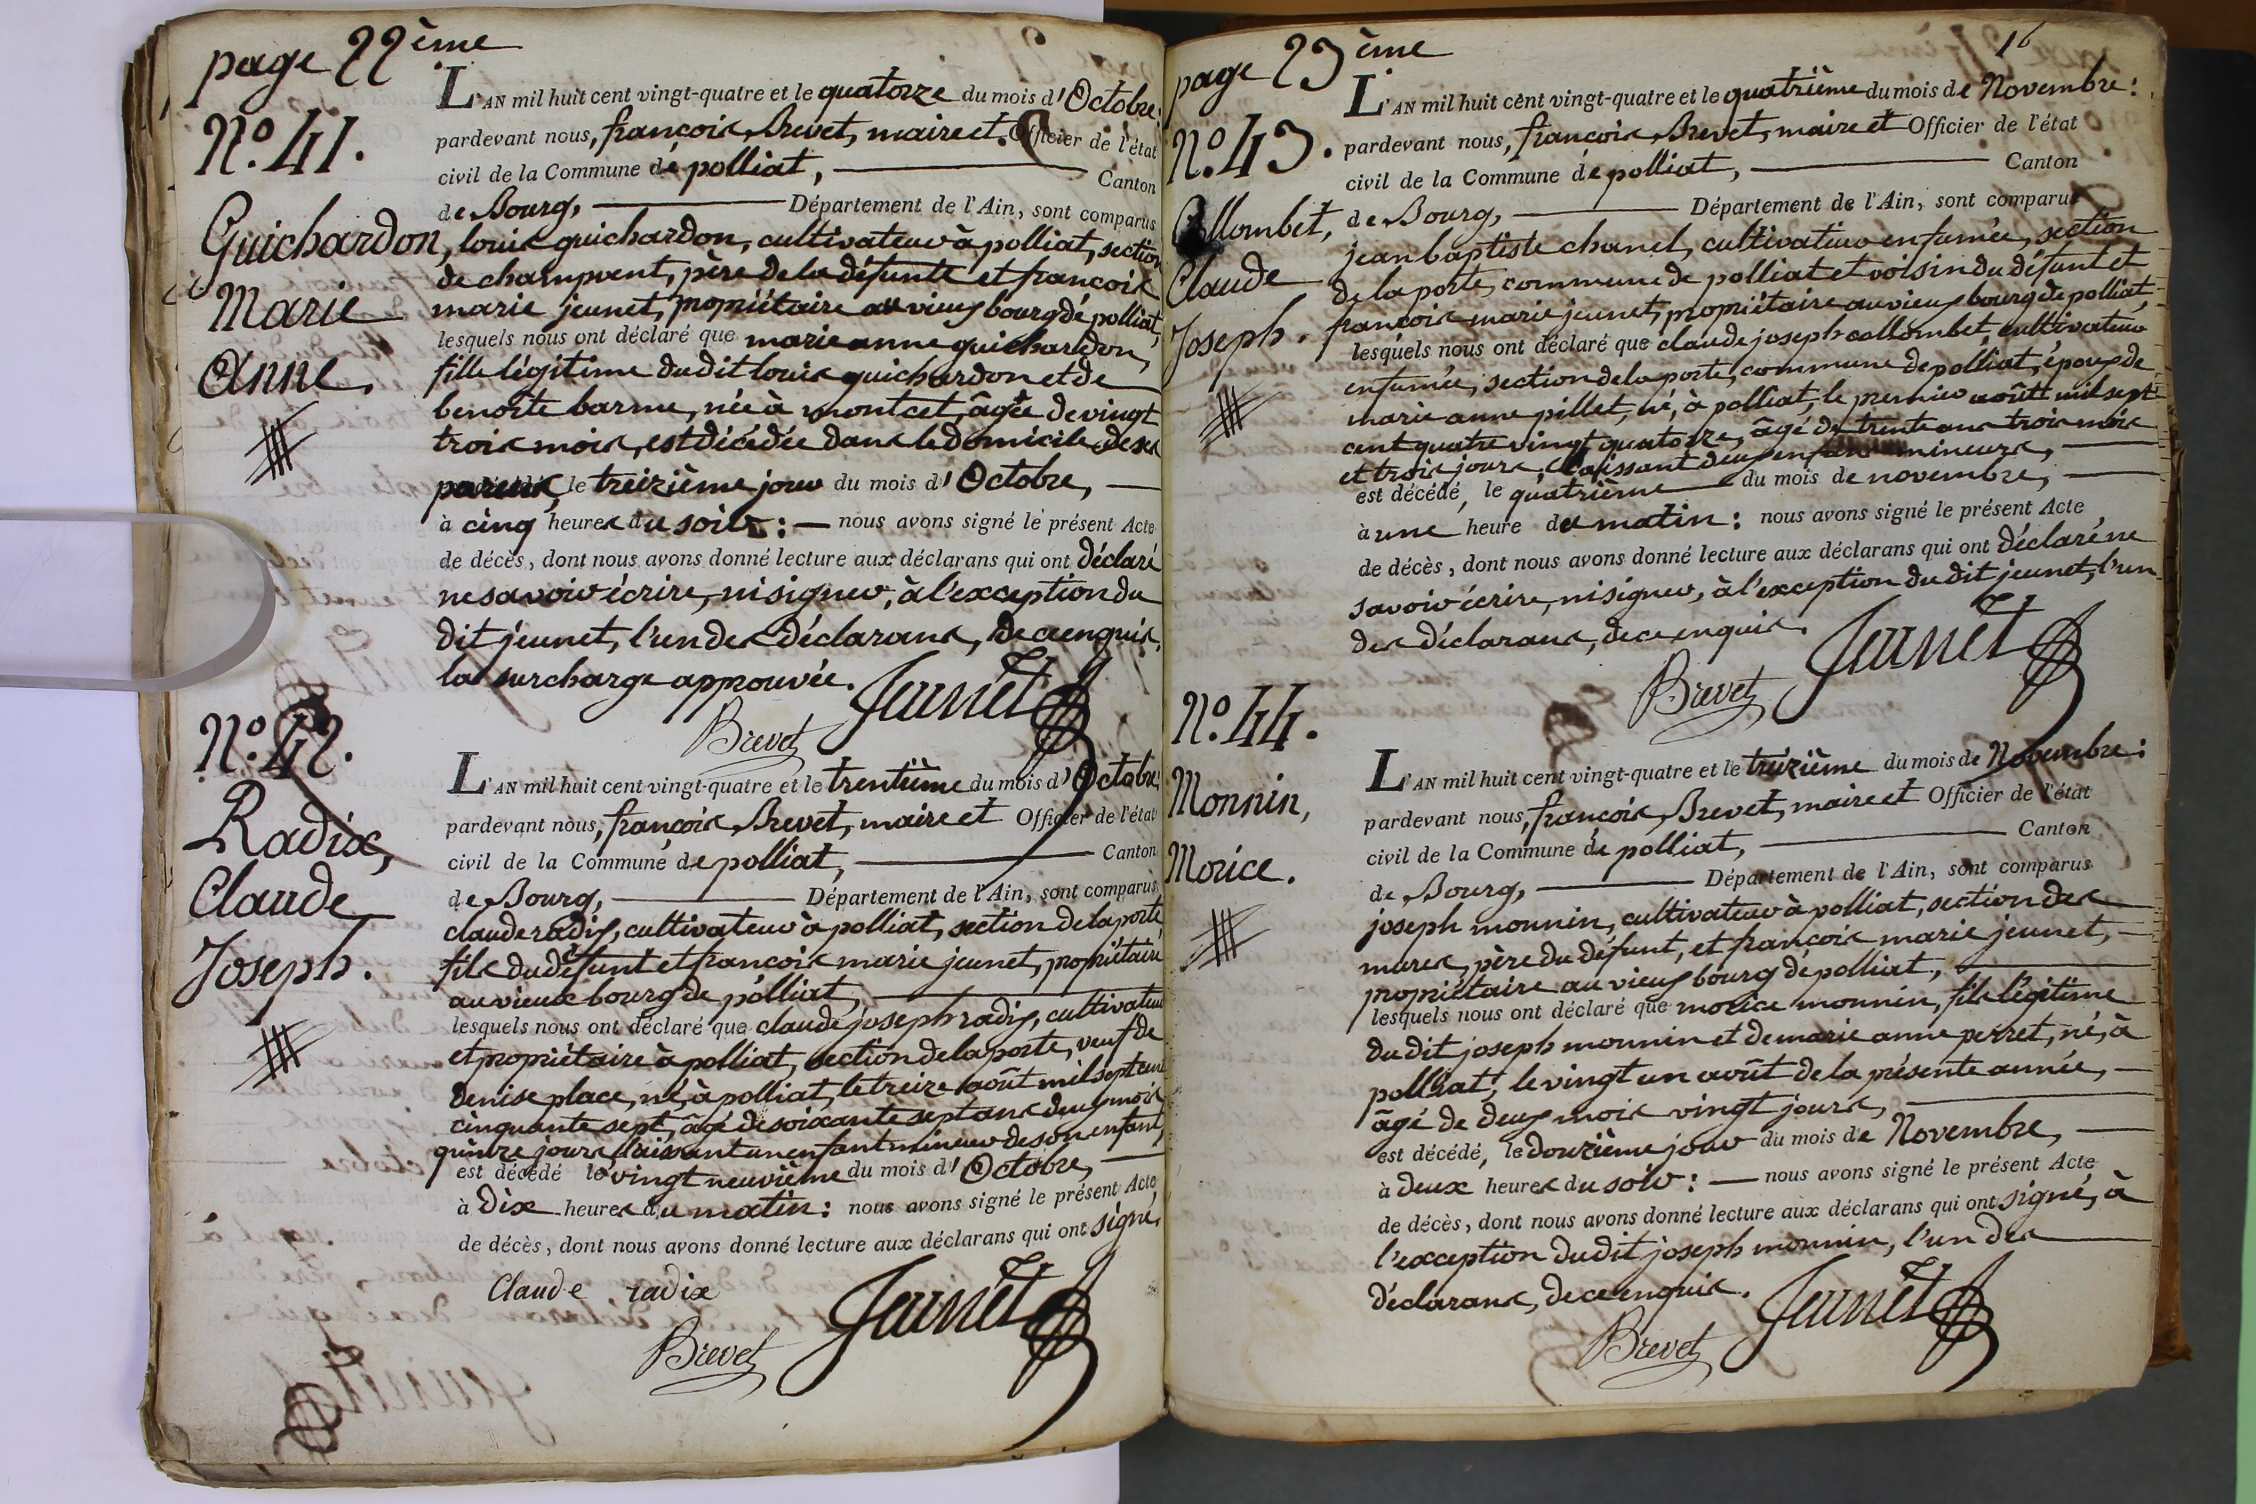 page 22ème
N.º 41.
Guichardon,
Marie
Anne.
L'AN mil huit cent vingt-quatre et le quatorze du mois d'Octobre:
pardevant nous, françois Brevet, maire et Officier de l'état
civil de la Commune de polliat, Canton
de Bourg, Département de l'Ain, sont comparus
louis guichardon, cultivateur à polliat, section
de champvent, père de la défunte et françois
marie jeunet, propriétaire au vieux bourg de polliat,
lesquels nous ont déclaré que marie anne guichardon,
fille légitime du dit louis guichardon et de
benoîte barme, née à montcet, âgée de vingt
trois mois, est décédée dans le domicile de ses
parens, le treizième jour du mois d'Octobre,
à cinq heures du soir: nous avons signé le présent Acte
de décès, dont nous avons donné lecture aux déclarans qui ont déclaré
ne savoir écrire, ni signer, à l'exception du
dit jeunet, l'un des déclarans, de ce enquis.
la surcharge approuvée.
Jeunet
Brevet
N.º 42.
Radix,
Claude
Joseph.
L'AN mil huit cent vingt-quatre et le trentième du mois d'Octobre,
pardevant nous, françois Brevet, maire et Officier de l'état
civil de la Commune de polliat, Canton
de Bourg, Département de l'Ain, sont comparus
claude radix, cultivateur à polliat, section de la porte,
fils du défunt et françois marie jeunet, propriétaire
au vieux bourg de polliat,
lesquels nous ont déclaré que claude joseph radix, cultivateur
et propriétaire à polliat, section de la porte, veuf de
denise place, né, à polliat, le treize août mil sept cent
cinquante sept, âgé de soixante sept ans deux mois
quinze jours, laissant un enfant mineur de son enfant,
est décédé le vingt neuvième du mois d'Octobre,
à dix heures du matin: nous avons signé le présent Acte
de décès, dont nous avons donné lecture aux déclarans qui ont signé,
Claude radix
Jeunet
Brevet
16
page 23ème
N.º 43.
Collombet,
Claude
Joseph.
L'AN mil huit cent vingt-quatre et le quatrième du mois de Novembre:
pardevant nous, françois Brevet, maire et Officier de l'état
civil de la Commune de polliat, Canton
de Bourg, Département de l'Ain, sont comparus
jean baptiste chanel, cultivateur en fumée, section
de la porte, commune de polliat et voisin du défunt et
françois marie jeunet, propriétaire au vieux bourg de polliat,
lesquels nous ont déclaré que claude joseph collombet, cultivateur
en fumée, section de la porte, commune de polliat, époux de
marie anne pillet, né, à polliat, le premier août mil sept
cent quatre vingt quatorze, âgé de trente ans trois mois
et trois jours, laissant deux enfans mineurs,
est décédé, le quatrième du mois de novembre,
à une heure du matin: nous avons signé le présent Acte
de décès, dont nous avons donné lecture aux déclarans qui ont déclaré ne
savoir écrire, ni signer, à l'exception du dit jeunet, l'un
des déclarans, de ce enquis.
Jeunet
Brevet
N.º 44.
Monnin,
Morice.
L'AN mil huit cent vingt-quatre et le treizième du mois de Novembre:
pardevant nous, françois Brevet, maire et Officier de l'état
civil de la Commune de polliat, Canton
de Bourg, Département de l'Ain, sont comparus
joseph monnin, cultivateur à polliat, section des
mures, père du défunt, et françois marie jeunet,
propriétaire au vieux bourg de polliat,
lesquels nous ont déclaré que morice monnin, fils légitime
du dit joseph monnin et de marie anne perret, né, à
polliat, le vingt un août de la présente année,
âgé de deux mois vingt jours,
est décédé, le douzième jour du mois de Novembre,
à deux heures du soir: nous avons signé le présent Acte
de décès, dont nous avons donné lecture aux déclarans qui ont signé, à
l'exception du dit joseph monnin, l'un des
déclarans, de ce enquis.
Jeunet
Brevet